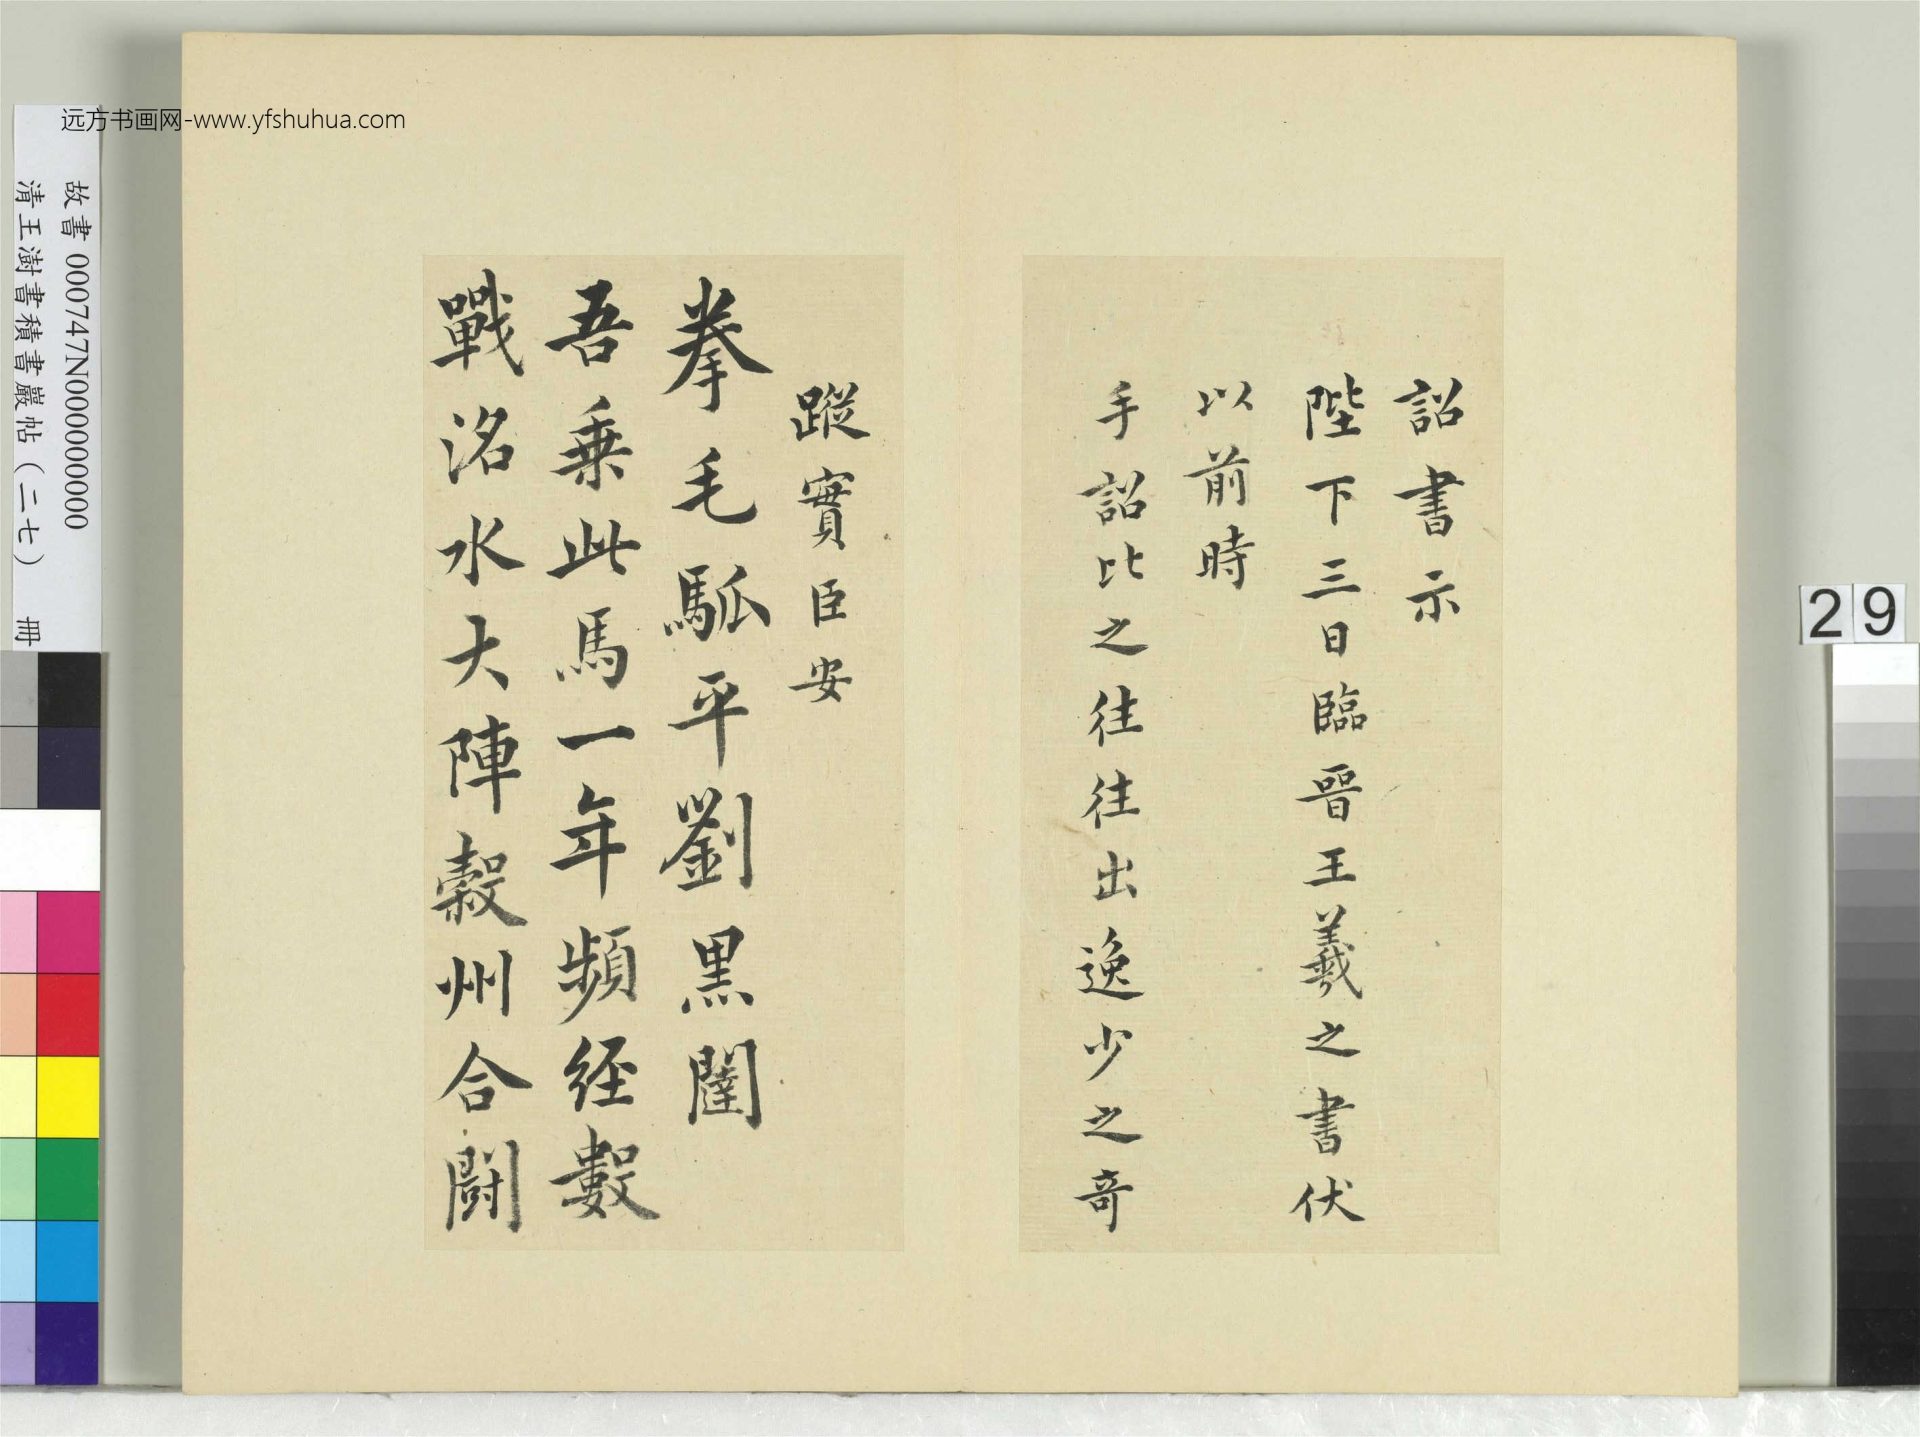 远方书画网-www.yfshuhua.com
故書 000747N000000000
清王澍書積書巖帖(二七) 冊
29
詔書示
陛下三日臨晉王羲之書伏
以前時
手詔比之往往出逸少之奇
蹤實臣安
拳毛䯄平劉黑闥
吾乗此馬一年頻經數
戰洺水大陣縠州合闘